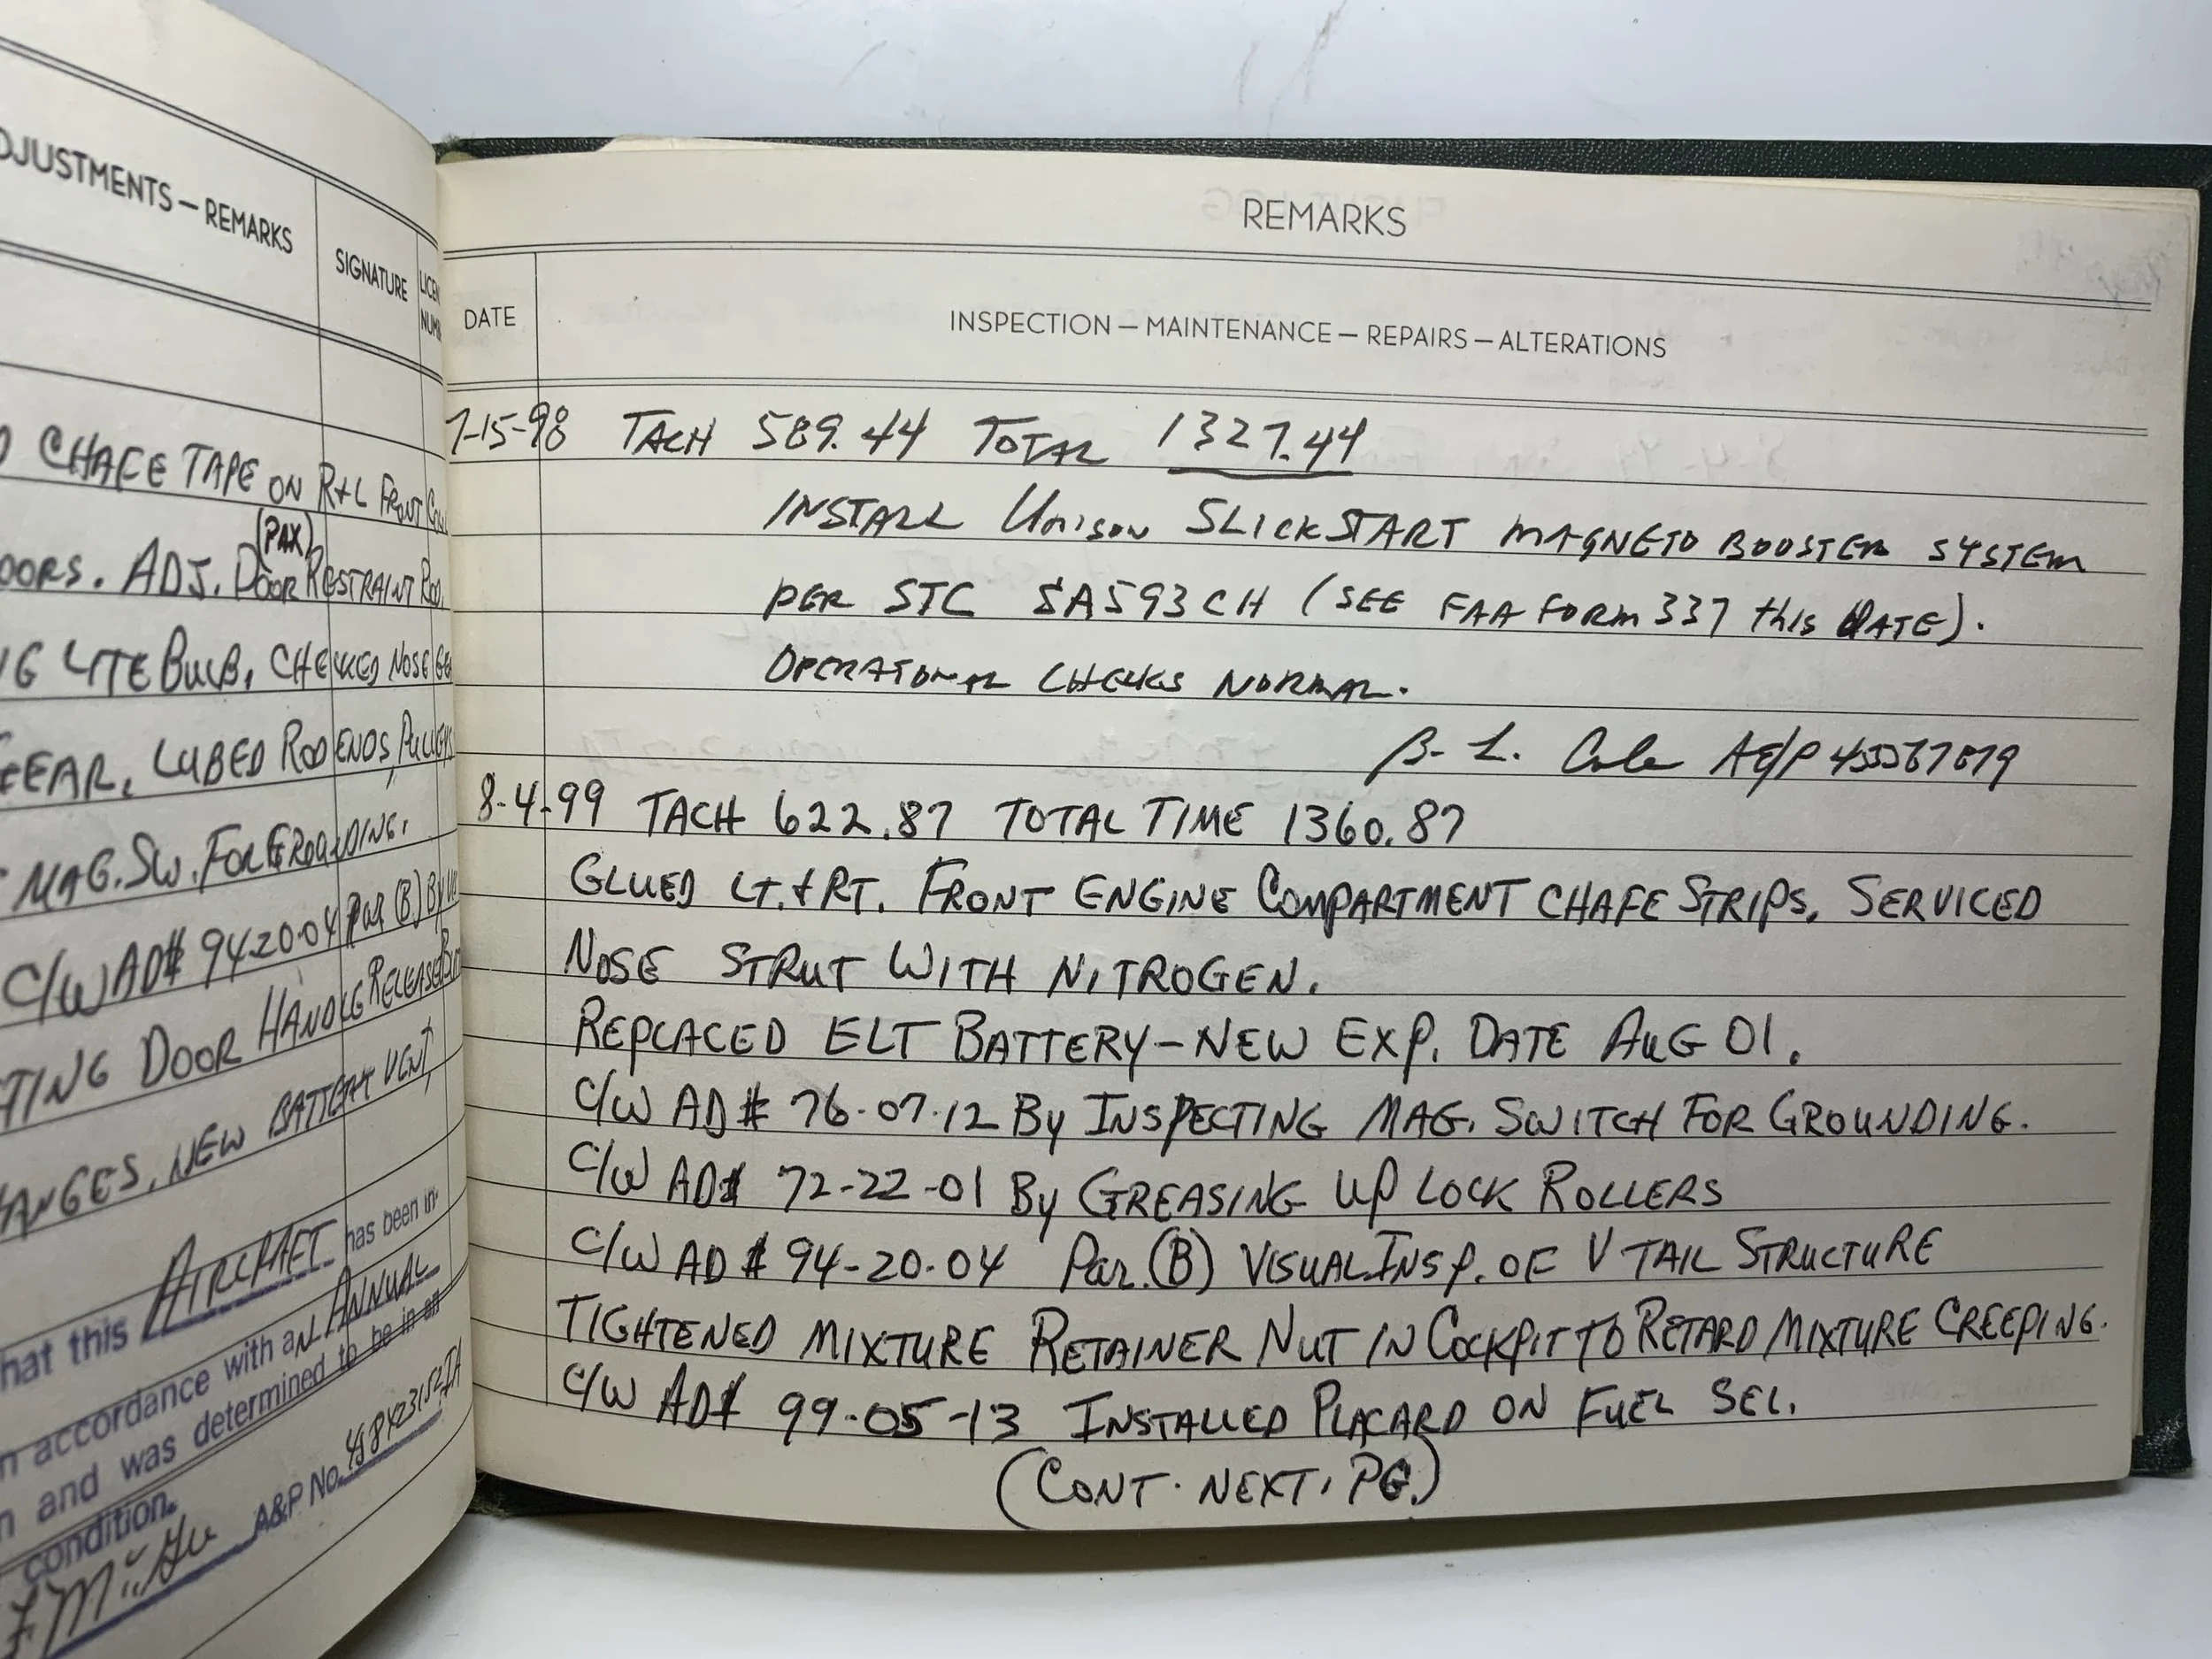 DJUSTMENTS — REMARKS
SIGNATURE
CHAFE TAPE ON R+L FRONT
(PAX)
OORS. ADJ. DOOR RESTRAINT ROD,
LITE BULB, CHECKED NOSE GE
GEAR, LUBED ROD ENDS, PULLEYS
MAG. SW. FOR GROUNDING.
C/W AD# 94-20-04 Par (B) By
TING DOOR HANDLE RELEASE
ANGES, NEW BATTERY VENT,
hat this AIRCRAFT has been in
n accordance with an ANNUAL
n and was determined to be in an
condition.
A&P No.
REMARKS
DATE
INSPECTION — MAINTENANCE — REPAIRS — ALTERATIONS
7-15-98 TACH 589.44 TOTAL 1327.44
INSTALL Unison SLICKSTART MAGNETO BOOSTER SYSTEM
PER STC SA593CH (SEE FAA FORM 337 this DATE).
OPERATIONAL CHECKS NORMAL.
B. L. Cole A&P
8-4-99 TACH 622.87 TOTAL TIME 1360.87
GLUED LT. & RT. FRONT ENGINE COMPARTMENT CHAFE STRIPS. SERVICED
NOSE STRUT WITH NITROGEN.
REPLACED ELT BATTERY — NEW EXP. DATE AUG 01.
C/W AD# 76-07-12 By INSPECTING MAG. SWITCH FOR GROUNDING.
C/W AD# 72-22-01 By GREASING UP LOCK ROLLERS
C/W AD# 94-20-04 Par. (B) VISUAL INSP. OF V TAIL STRUCTURE
TIGHTENED MIXTURE RETAINER NUT IN COCKPIT TO RETARD MIXTURE CREEPING.
C/W AD# 99-05-13 INSTALLED PLACARD ON FUEL SEL.
(CONT. NEXT. PG.)